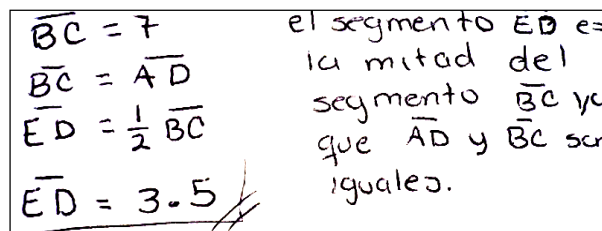 BC = 7
BC = AD
ED = 1/2 BC
ED = 3.5
el segmento ED es
la mitad del
segmento BC ya
que AD y BC son
iguales.